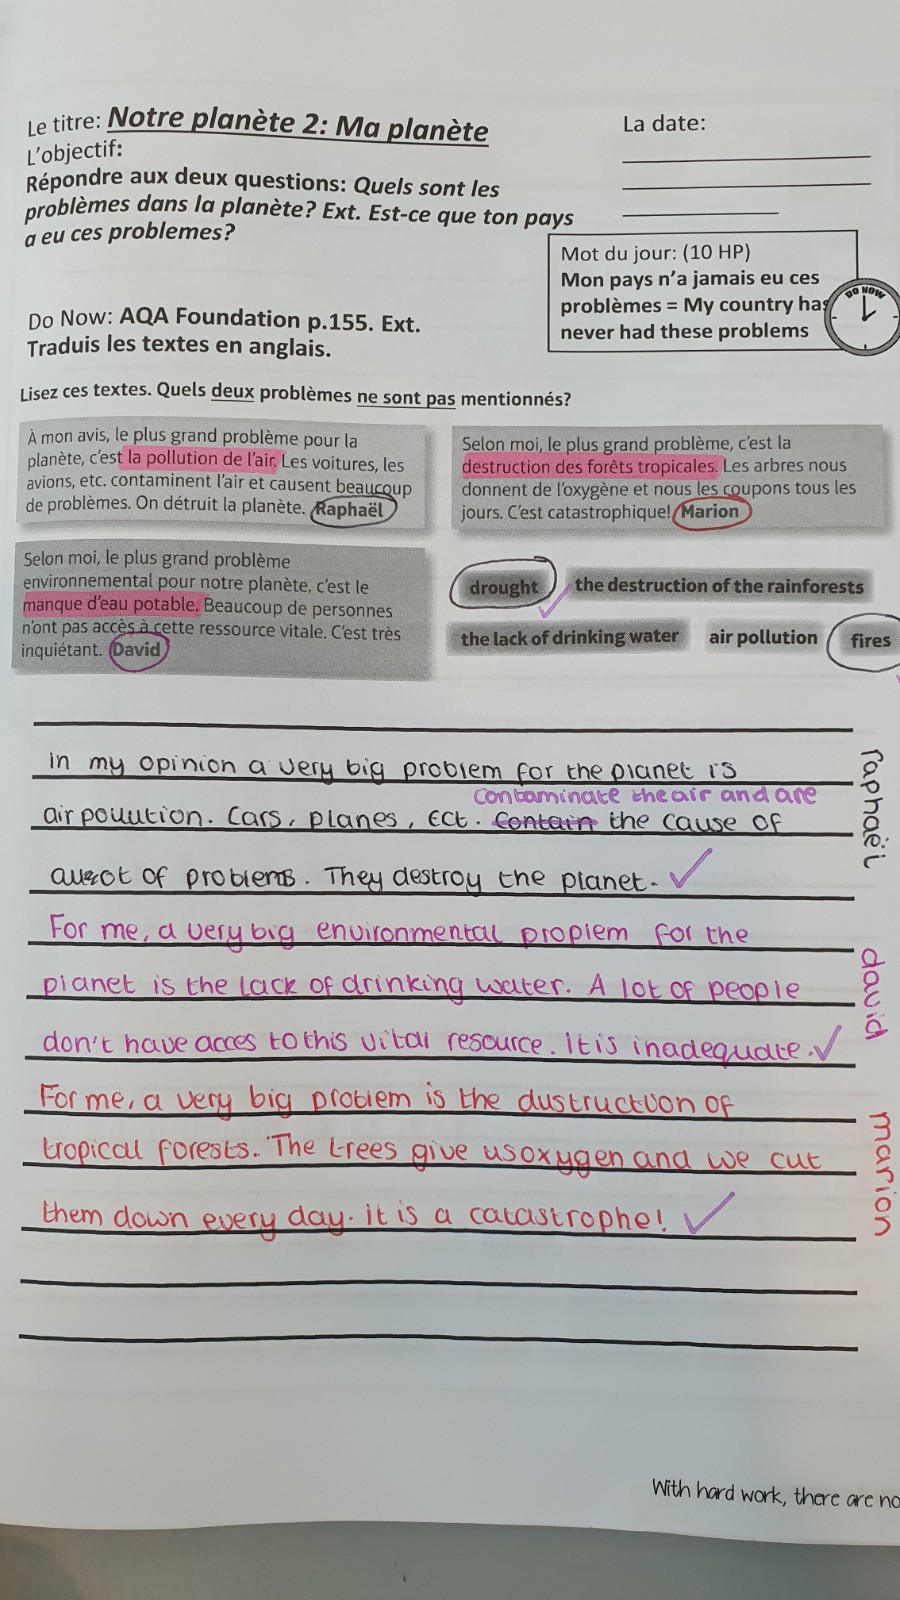 Le titre: Notre planète 2: Ma planète
La date:
L'objectif:
Répondre aux deux questions: Quels sont les
problèmes dans la planète? Ext. Est-ce que ton pays
a eu ces problemes?
Mot du jour: (10 HP)
Mon pays n'a jamais eu ces
problèmes = My country has
never had these problems
DO NOW
Do Now: AQA Foundation p.155. Ext.
Traduis les textes en anglais.
Lisez ces textes. Quels deux problèmes ne sont pas mentionnés?
À mon avis, le plus grand problème pour la
planète, c'est la pollution de l'air. Les voitures, les
avions, etc. contaminent l'air et causent beaucoup
de problèmes. On détruit la planète. Raphaël
Selon moi, le plus grand problème, c'est la
destruction des forêts tropicales. Les arbres nous
donnent de l'oxygène et nous les coupons tous les
jours. C'est catastrophique! Marion
Selon moi, le plus grand problème
environnemental pour notre planète, c'est le
manque d'eau potable. Beaucoup de personnes
n'ont pas accès à cette ressource vitale. C'est très
inquiétant. David
drought the destruction of the rainforests
the lack of drinking water air pollution fires
In my opinion a very big problem for the planet is
contaminate the air and are
air pollution. Cars, planes, ect. contain the cause of
of problems. They destroy the planet.
raphaël
For me, a very big environmental proplem for the
planet is the lack of drinking water. A lot of people
don't have acces to this vital resource. It is inadequate.
david
For me, a very big problem is the dustruction of
tropical forests. The trees give us oxygen and we cut
them down every day. it is a catastrophe!
marion
With hard work, there are no